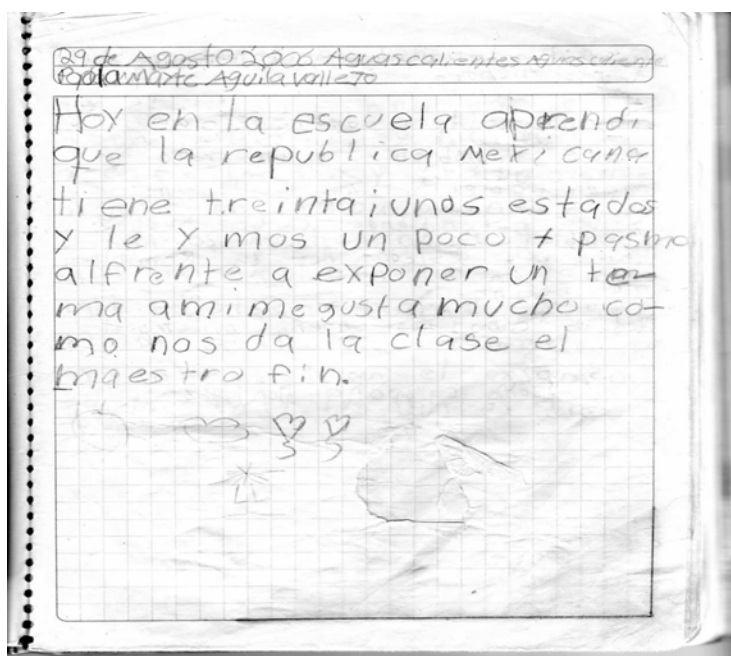 29 de Agosto 2,006 Aguascalientes Aguascaliente
Paola Mayte Aguilavallejo
Hoy en la escuela aprendi
que la republica Mexicana
tiene treintaiunos estados
y le y mos un poco y pasmo
alfrente a exponer un te-
ma amimegusta mucho co-
mo nos da la clase el
maestro fin.